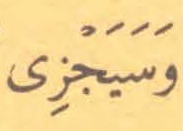 وَسَيَجْزِى